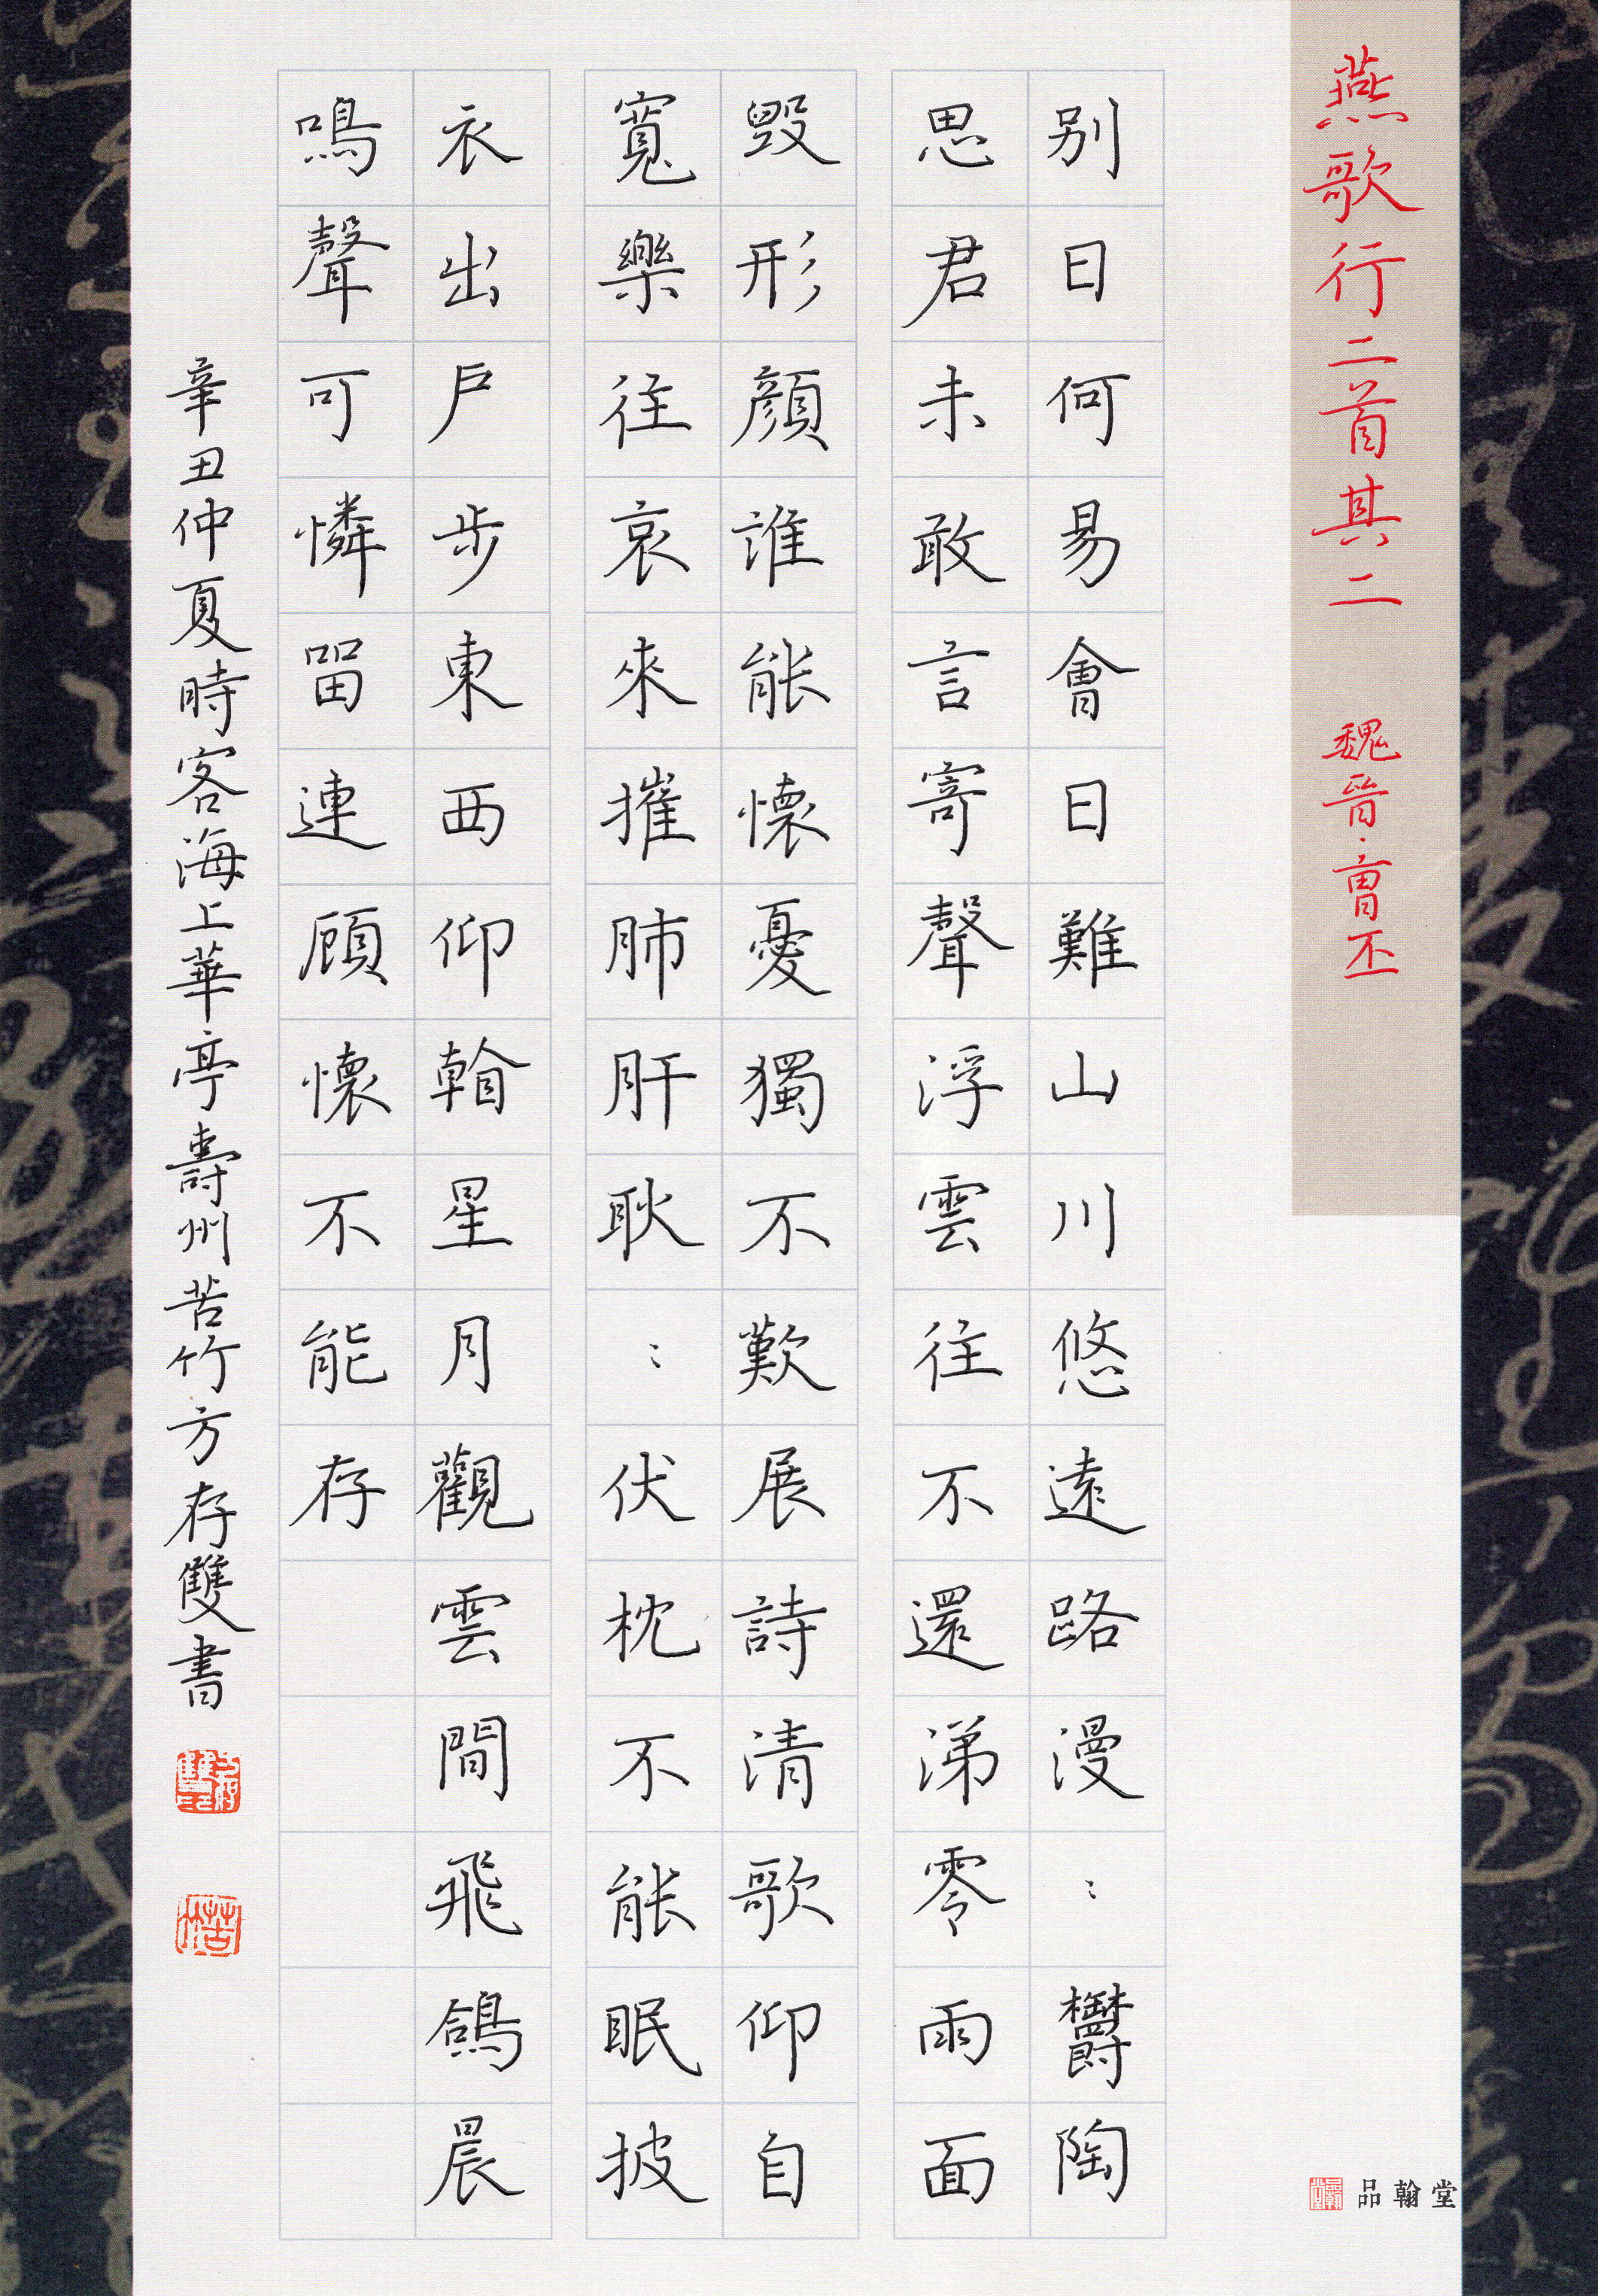 燕歌行二首其二 魏晉·曹丕
别日何易會日難山川悠遠路漫〻鬱陶
思君未敢言寄聲浮雲往不還涕零雨面
毀形顏誰能懷憂獨不歎展詩清歌仰自
寬樂往哀來摧肺肝耿〻伏枕不能眠披
衣出戶步東西仰看星月觀雲間飛鴿晨
鳴聲可憐留連顧懷不能存
辛丑仲夏時客海上華亭壽州苦竹方存雙書
品翰堂